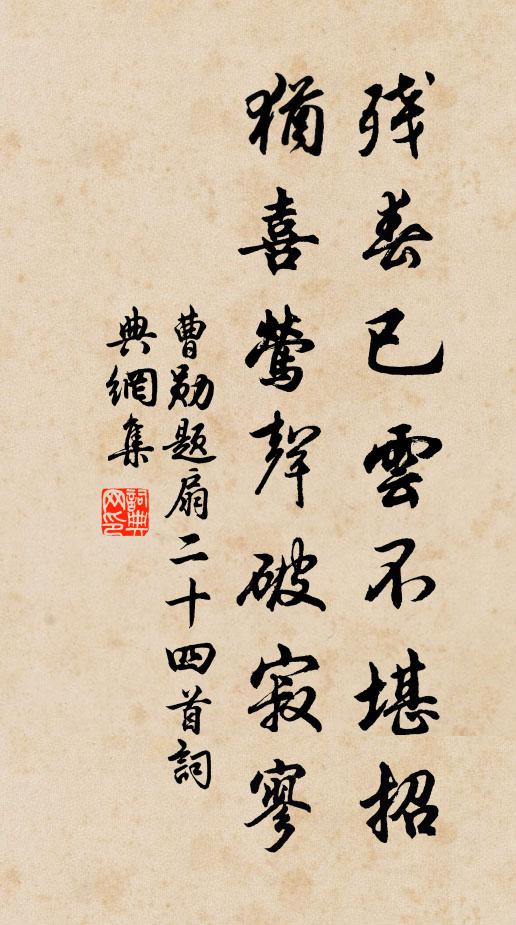 残春已雲不堪招
猶喜鶯聲破寂寥
曹勛題扇二十四首詞
典網集
詞典網印